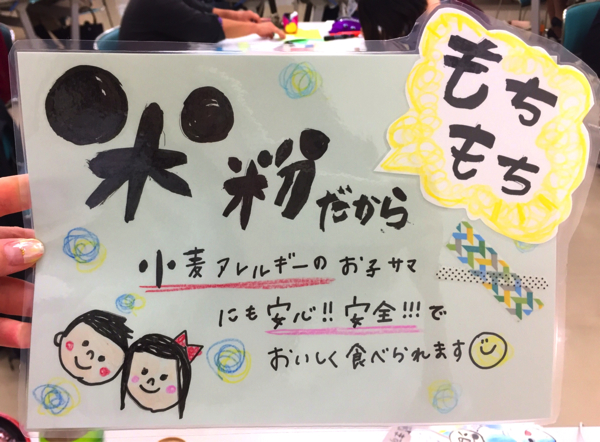 もちもち
米粉だから
小麦アレルギーの お子サマ
にも 安心!! 安全!!!で
おいしく食べられます